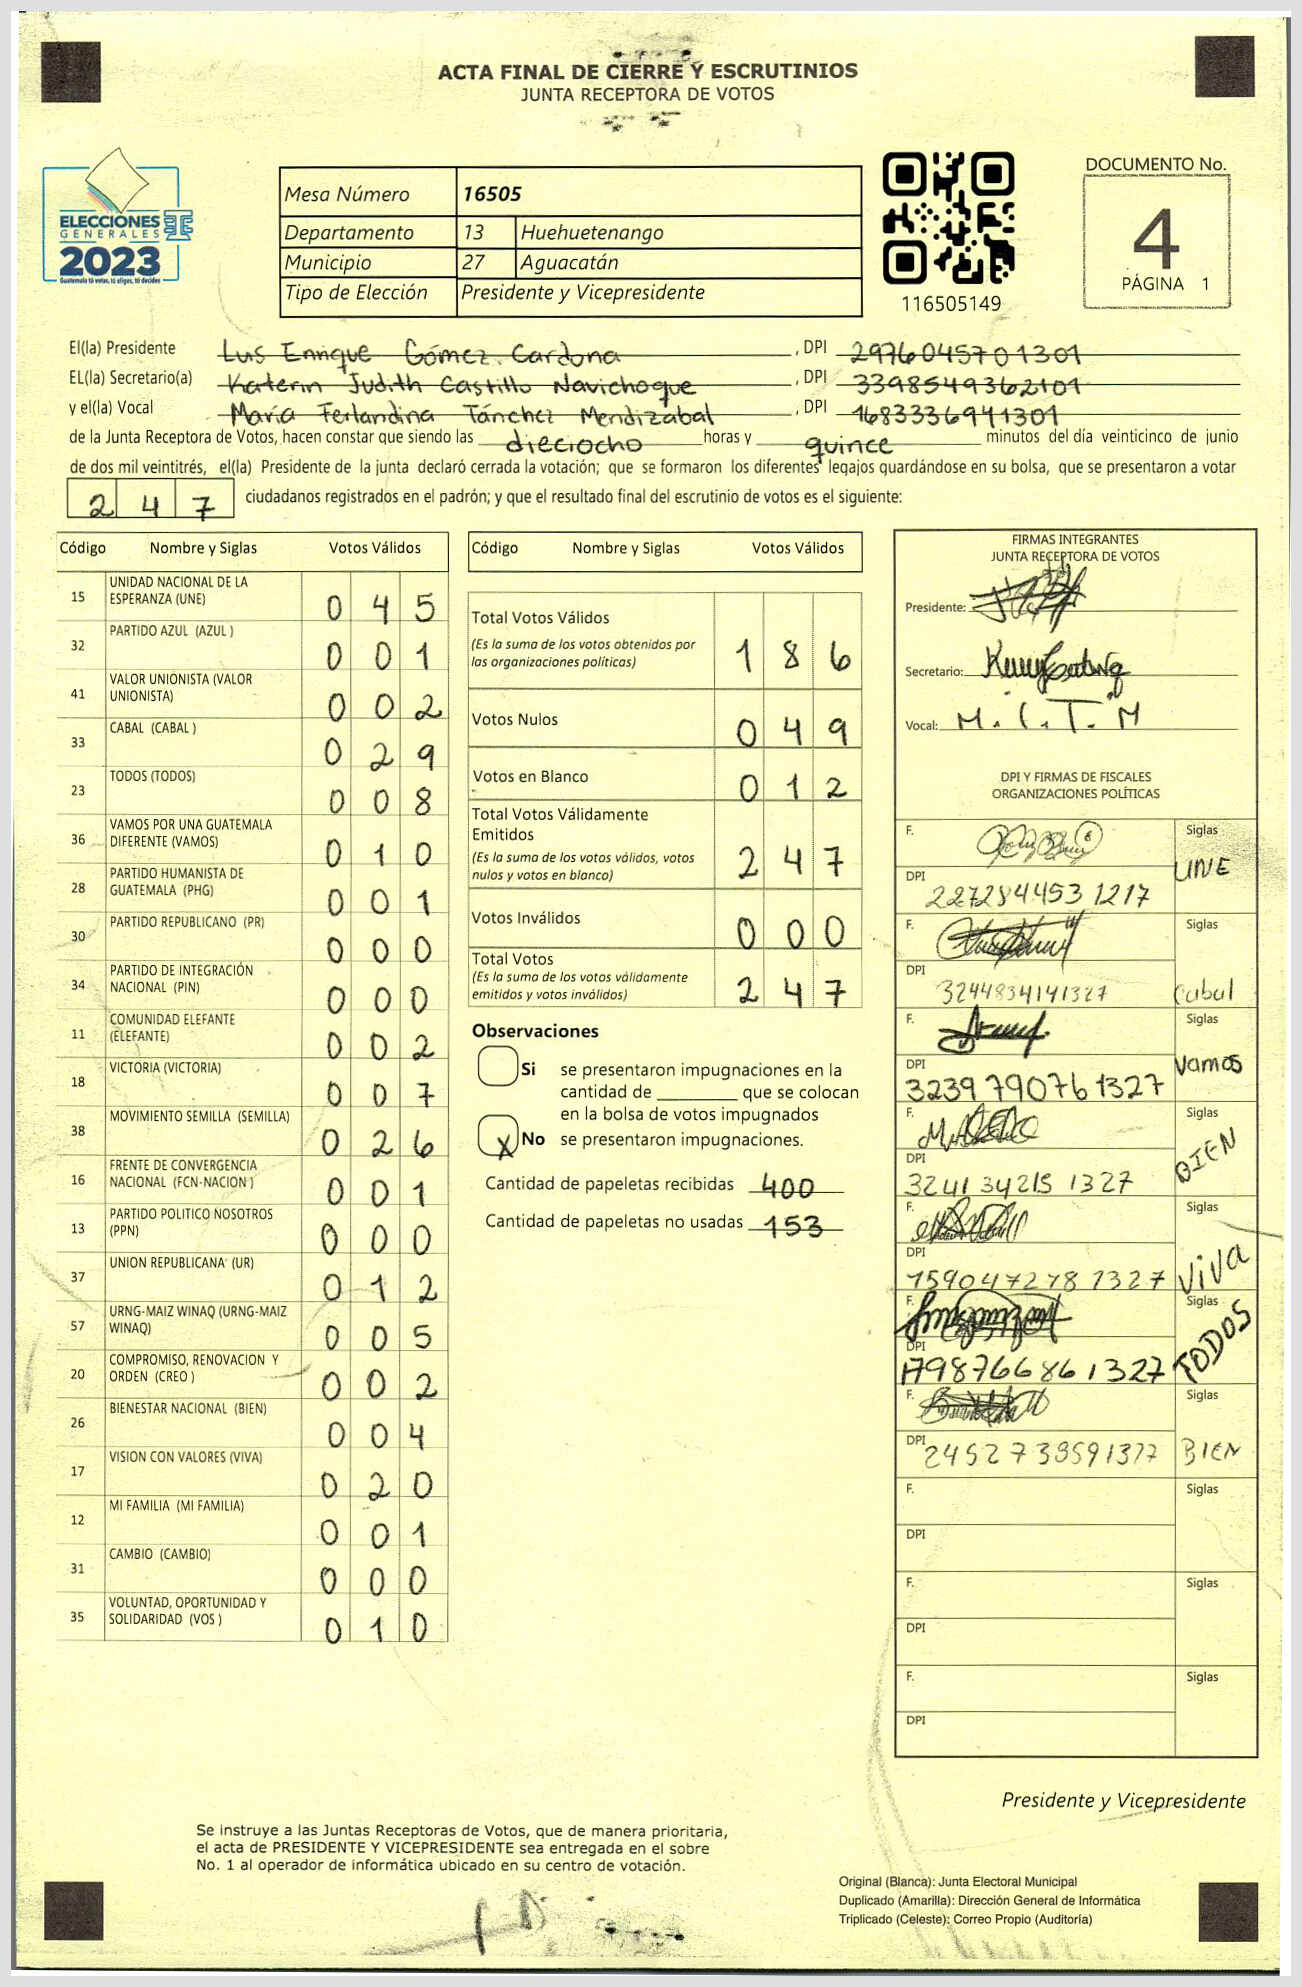 ACTA FINAL DE CIERRE Y ESCRUTINIOS
JUNTA RECEPTORA DE VOTOS
ELECCIONES
GENERALES
2023
Guatemala tú votas, tú eliges, tú decides
Mesa Número 16505
Departamento 13 Huehuetenango
Municipio 27 Aguacatán
Tipo de Elección Presidente y Vicepresidente
116505149
DOCUMENTO No.
4
PÁGINA 1
El(la) Presidente Luis Enrique Gómez Cardona, DPI 2976045701301
EL(la) Secretario(a) Katerin Judith Castillo Navichoque, DPI 3398549362101
y el(la) Vocal María Ferlandina Tánchez Mendizabal, DPI 1683336941301
de la Junta Receptora de Votos, hacen constar que siendo las dieciocho horas y quince minutos del día veinticinco de junio
de dos mil veintitrés, el(la) Presidente de la junta declaró cerrada la votación; que se formaron los diferentes legajos guardándose en su bolsa, que se presentaron a votar
247 ciudadanos registrados en el padrón; y que el resultado final del escrutinio de votos es el siguiente:
Código Nombre y Siglas Votos Válidos
15 UNIDAD NACIONAL DE LA ESPERANZA (UNE) 045
32 PARTIDO AZUL (AZUL ) 001
41 VALOR UNIONISTA (VALOR UNIONISTA) 002
33 CABAL (CABAL ) 029
23 TODOS (TODOS) 008
36 VAMOS POR UNA GUATEMALA DIFERENTE (VAMOS) 010
28 PARTIDO HUMANISTA DE GUATEMALA (PHG) 001
30 PARTIDO REPUBLICANO (PR) 000
34 PARTIDO DE INTEGRACIÓN NACIONAL (PIN) 000
11 COMUNIDAD ELEFANTE (ELEFANTE) 002
18 VICTORIA (VICTORIA) 007
38 MOVIMIENTO SEMILLA (SEMILLA) 026
16 FRENTE DE CONVERGENCIA NACIONAL (FCN-NACION ) 001
13 PARTIDO POLITICO NOSOTROS (PPN) 000
37 UNION REPUBLICANA (UR) 012
57 URNG-MAIZ WINAQ (URNG-MAIZ WINAQ) 005
20 COMPROMISO, RENOVACION Y ORDEN (CREO ) 002
26 BIENESTAR NACIONAL (BIEN) 004
17 VISION CON VALORES (VIVA) 020
12 MI FAMILIA (MI FAMILIA) 001
31 CAMBIO (CAMBIO) 000
35 VOLUNTAD, OPORTUNIDAD Y SOLIDARIDAD (VOS ) 010
Código Nombre y Siglas Votos Válidos
Total Votos Válidos
(Es la suma de los votos obtenidos por
las organizaciones políticas) 186
Votos Nulos 049
Votos en Blanco 012
Total Votos Válidamente
Emitidos
(Es la suma de los votos válidos, votos
nulos y votos en blanco) 247
Votos Inválidos 000
Total Votos
(Es la suma de los votos válidamente
emitidos y votos inválidos) 247
Observaciones
Si se presentaron impugnaciones en la
cantidad de ________ que se colocan
en la bolsa de votos impugnados
X No se presentaron impugnaciones.
Cantidad de papeletas recibidas 400
Cantidad de papeletas no usadas 153
FIRMAS INTEGRANTES
JUNTA RECEPTORA DE VOTOS
Presidente:
Secretario:
Vocal: M. C. T. M
DPI Y FIRMAS DE FISCALES
ORGANIZACIONES POLÍTICAS
F. Siglas UNE
DPI 2272844531217
F. Siglas Cabal
DPI 3244834141327
F. Siglas Vamos
DPI 3239790761327
F. Siglas BIEN
DPI 3241342151327
F. Siglas VIVA
DPI 1590472781327
F. Siglas TODOS
DPI 1798766861327
F. Siglas BIEN
DPI
F. Siglas
DPI
F. Siglas
DPI
F. Siglas
DPI
Presidente y Vicepresidente
Se instruye a las Juntas Receptoras de Votos, que de manera prioritaria,
el acta de PRESIDENTE Y VICEPRESIDENTE sea entregada en el sobre
No. 1 al operador de informática ubicado en su centro de votación.
Original (Blanca): Junta Electoral Municipal
Duplicado (Amarilla): Dirección General de Informática
Triplicado (Celeste): Correo Propio (Auditoría)